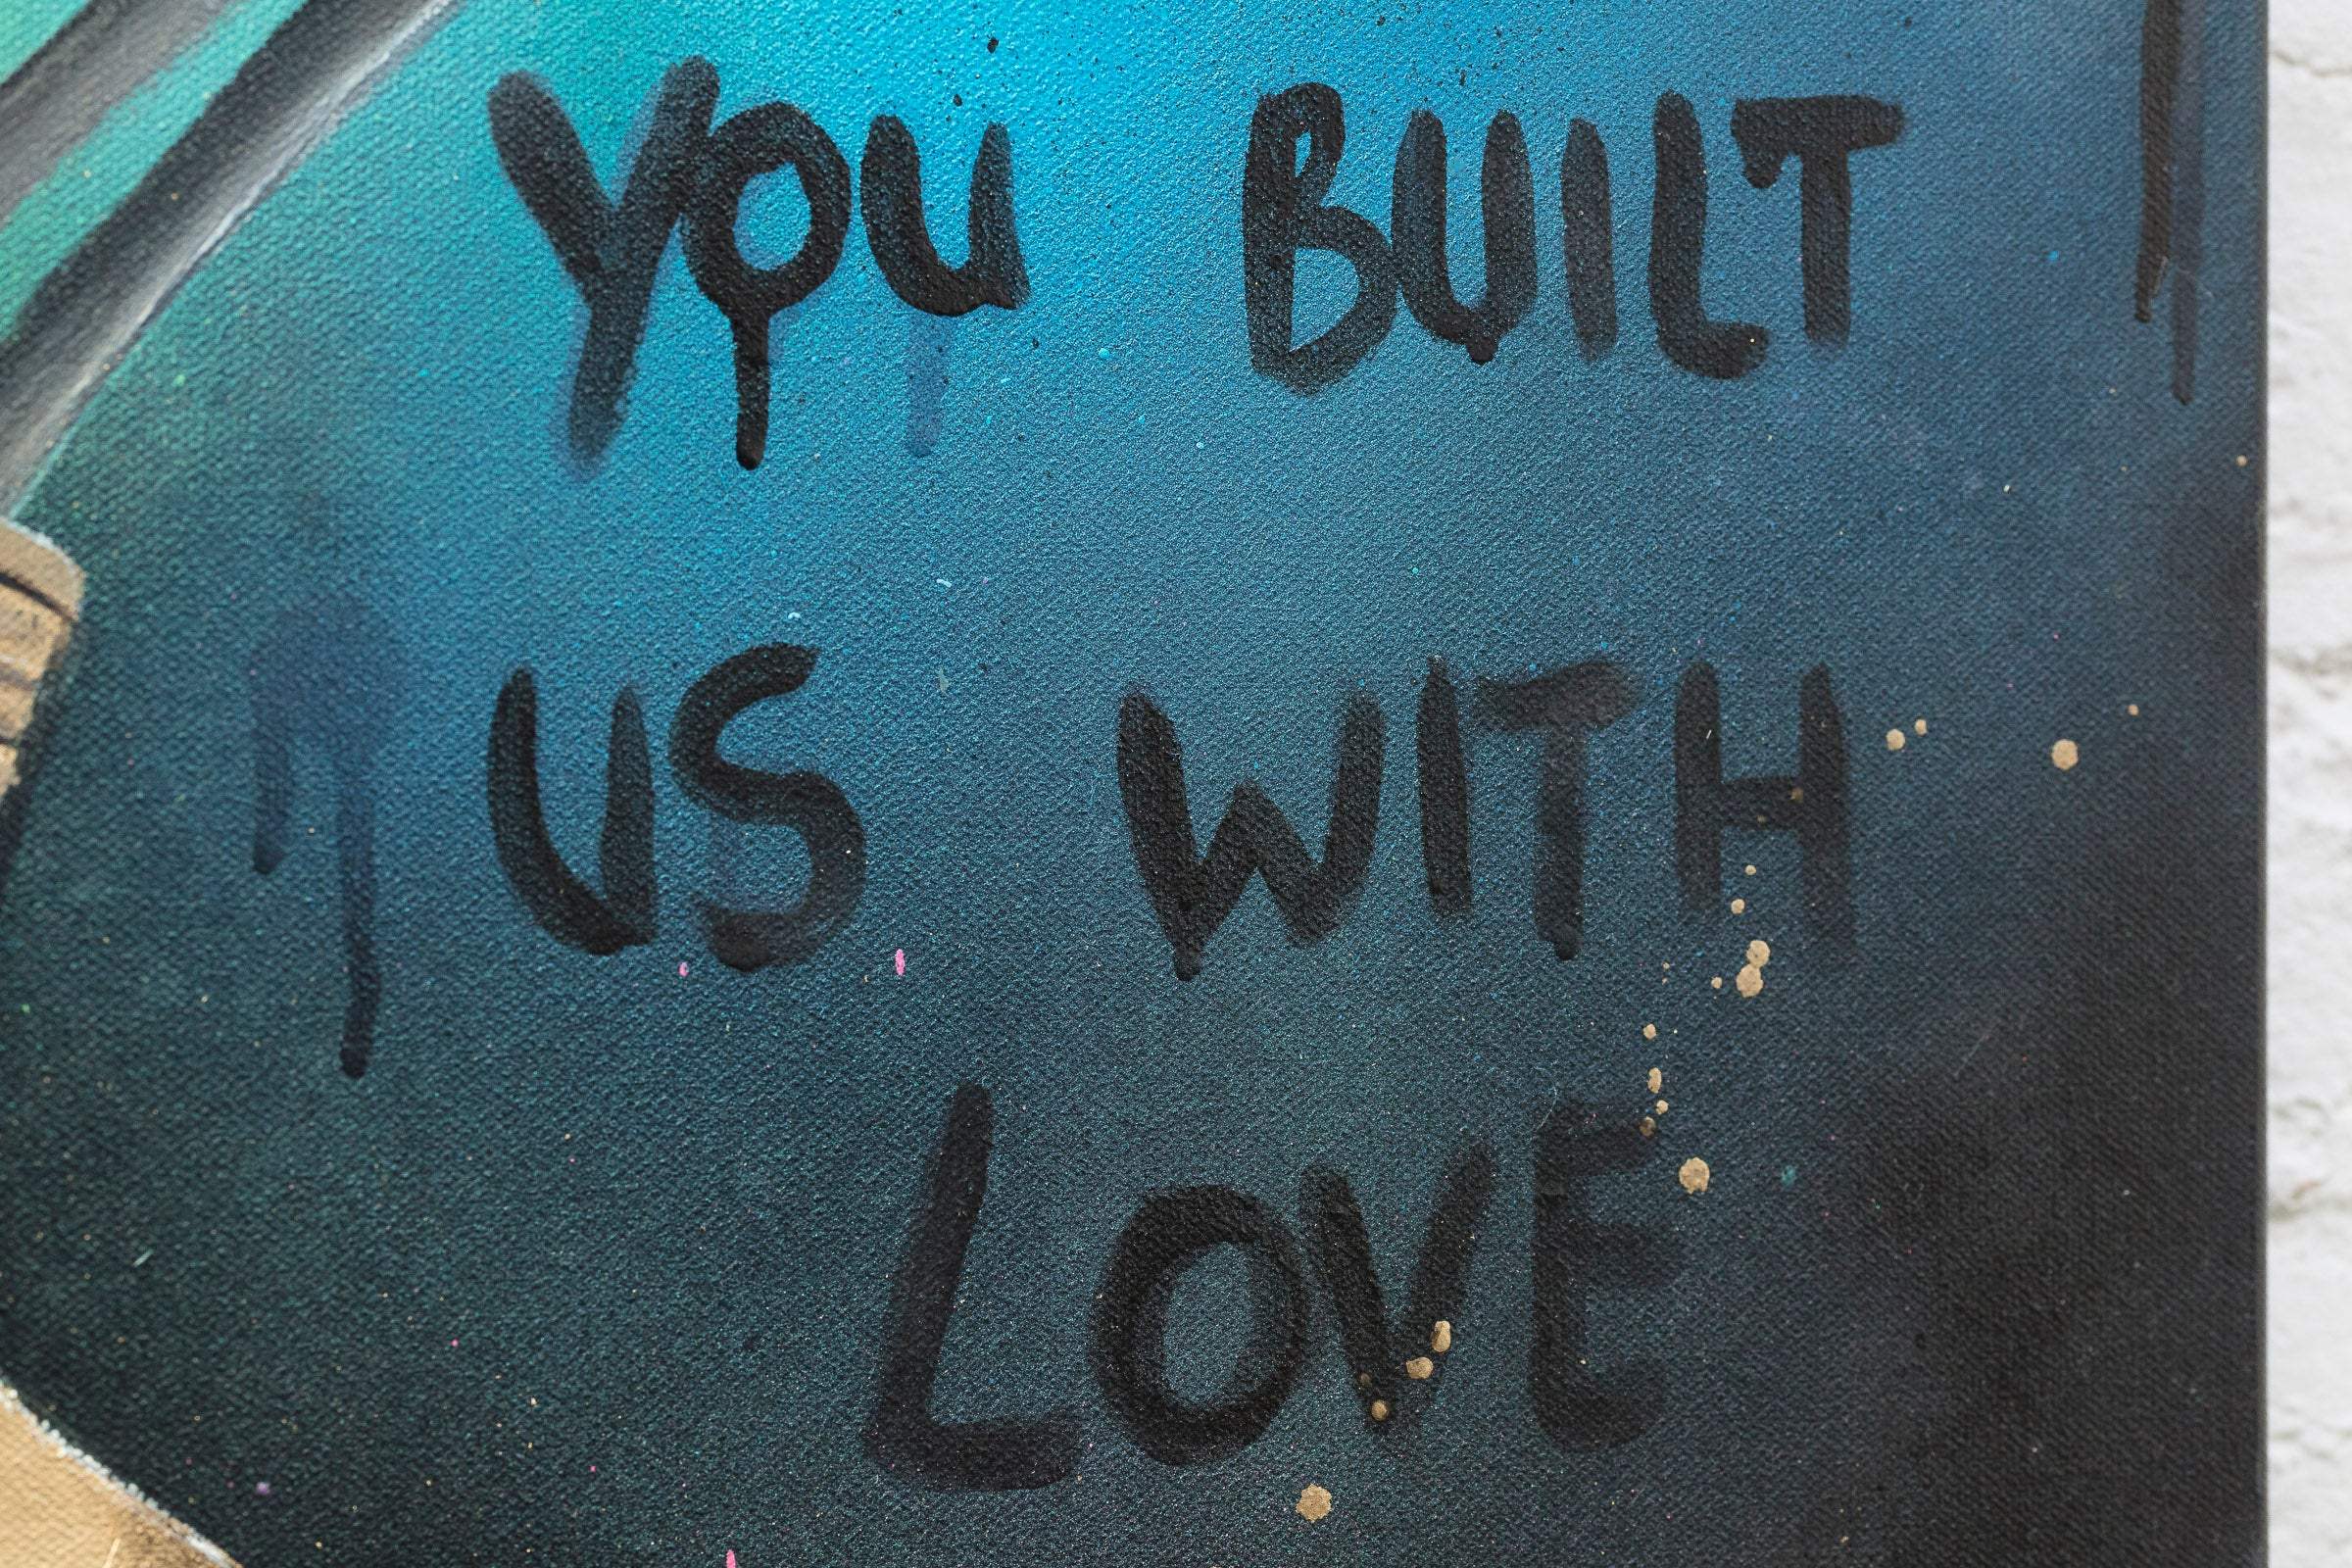 YOU BUILT
US WITH
LOVE